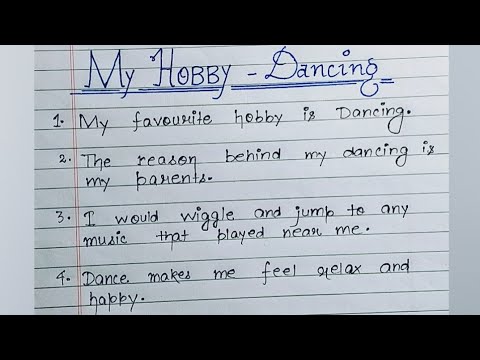 My Hobby - Dancing
1. My favourite hobby is Dancing.
2. The reason behind my dancing is
my parents.
3. I would wiggle and jump to any
music that played near me.
4. Dance makes me feel relax and
happy.